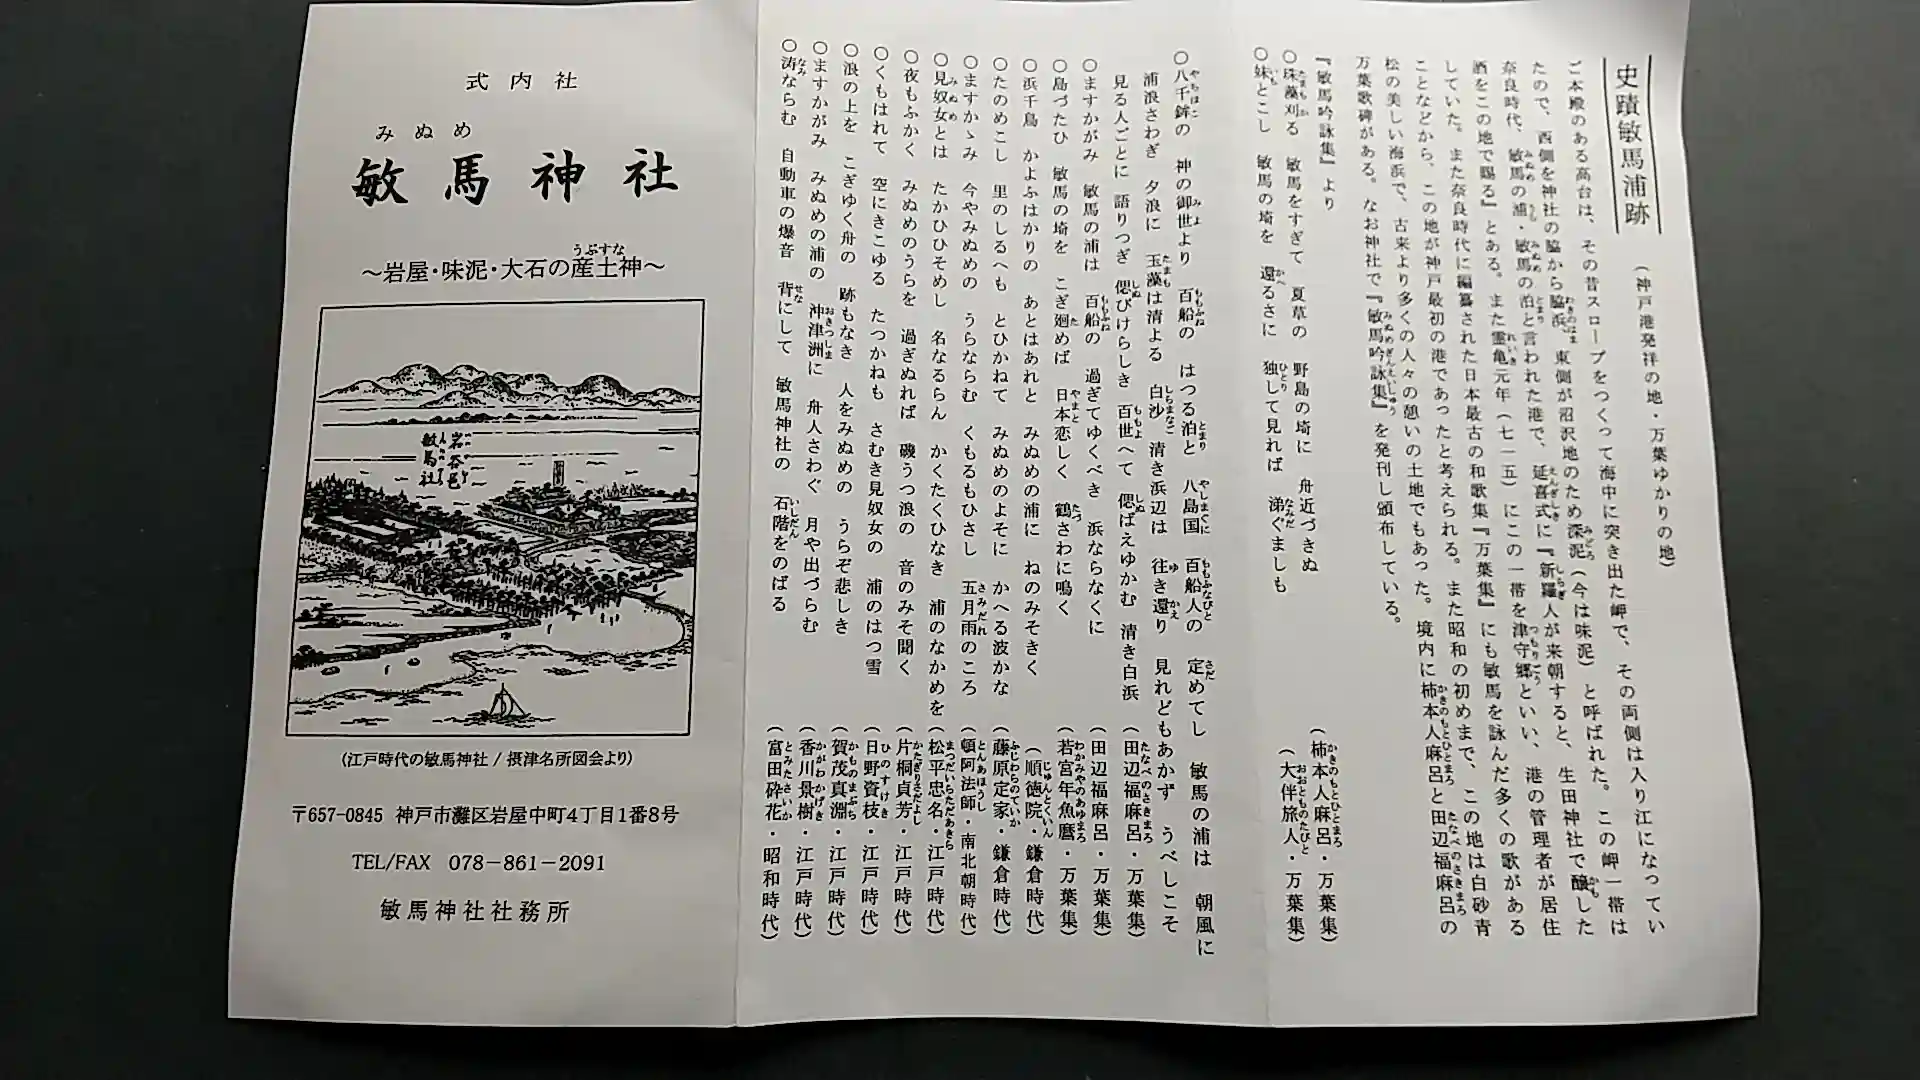 史蹟敏馬浦跡
(神戸港発祥の地・万葉ゆかりの地)
ご本殿のある高台は、その昔スロープをつくって海中に突き出た岬で、その両側は入り江になってい
たので、西側を神社の脇から脇浜、東側が沼沢地のため深泥(今は味泥)と呼ばれた。この岬一帯は
奈良時代、敏馬の浦・敏馬の泊と言われた港で、延喜式に『新羅人が来朝すると、生田神社で醸した
酒をこの地で賜る』とある。また霊亀元年(七一五)にこの一帯を津守郷といい、港の管理者が居住
していた。また奈良時代に編纂された日本最古の和歌集『万葉集』にも敏馬を詠んだ多くの歌がある
ことなどから、この地が神戸最初の港であったと考えられる。また昭和の初めまで、この地は白砂青
松の美しい海浜で、古来より多くの人々の憩いの土地でもあった。境内に柿本人麻呂と田辺福麻呂の
万葉歌碑がある。なお神社で『敏馬吟詠集』を発刊し頒布している。
『敏馬吟詠集』より
○珠藻刈る 敏馬をすぎて 夏草の 野島の埼に 舟近づきぬ (柿本人麻呂・万葉集)
○妹とこし 敏馬の埼を 還るさに 独して見れば 涕ぐましも (大伴旅人・万葉集)
○八千鉾の 神の御世より 百船の はつる泊と 八島国 百船人の 定めてし 敏馬の浦は 朝風に
浦浪さわぎ 夕浪に 玉藻は清よる 白沙 清き浜辺は 往き還り 見れどもあかず うべしこそ
見る人ごとに 語りつぎ 偲びけらしき 百世へて 偲ばえゆかむ 清き白浜 (田辺福麻呂・万葉集)
○ますかがみ 敏馬の浦は 百船の 過ぎてゆくべき 浜ならなくに (田辺福麻呂・万葉集)
○島づたひ 敏馬の埼を こぎ廻めば 日本恋しく 鶴さわに鳴く (若宮年魚麿・万葉集)
○浜千鳥 かよふはかりの あとはあれと みぬめの浦に ねのみそきく (順徳院・鎌倉時代)
○たのめこし 里のしるへも とひかねて みぬめのよそに かへる波かな (藤原定家・鎌倉時代)
○ますかゝみ 今やみぬめの うらならむ くもるもひさし 五月雨のころ (頓阿法師・南北朝時代)
○見奴女とは たかひひそめし 名なるらん かくたくひなき 浦のなかめを (松平忠名・江戸時代)
○夜もふかく みぬめのうらを 過ぎぬれば 磯うつ浪の 音のみそ聞く (片桐貞芳・江戸時代)
○くもはれて 空にきこゆる たつかねも さむき見奴女の 浦のはつ雪 (日野資枝・江戸時代)
○浪の上を こぎゆく舟の 跡もなき 人をみぬめの うらぞ悲しき (賀茂真淵・江戸時代)
○ますかがみ みぬめの浦の 沖津洲に 舟人さわぐ 月や出づらむ (香川景樹・江戸時代)
○涛ならむ 自動車の爆音 背にして 敏馬神社の 石階をのばる (富田砕花・昭和時代)
式内社
みぬめ
敏馬神社
うぶすな
～岩屋・味泥・大石の産土神～
岩谷邑
敏馬社
(江戸時代の敏馬神社/摂津名所図会より)
〒657-0845 神戸市灘区岩屋中町4丁目1番8号
TEL/FAX 078-861-2091
敏馬神社社務所